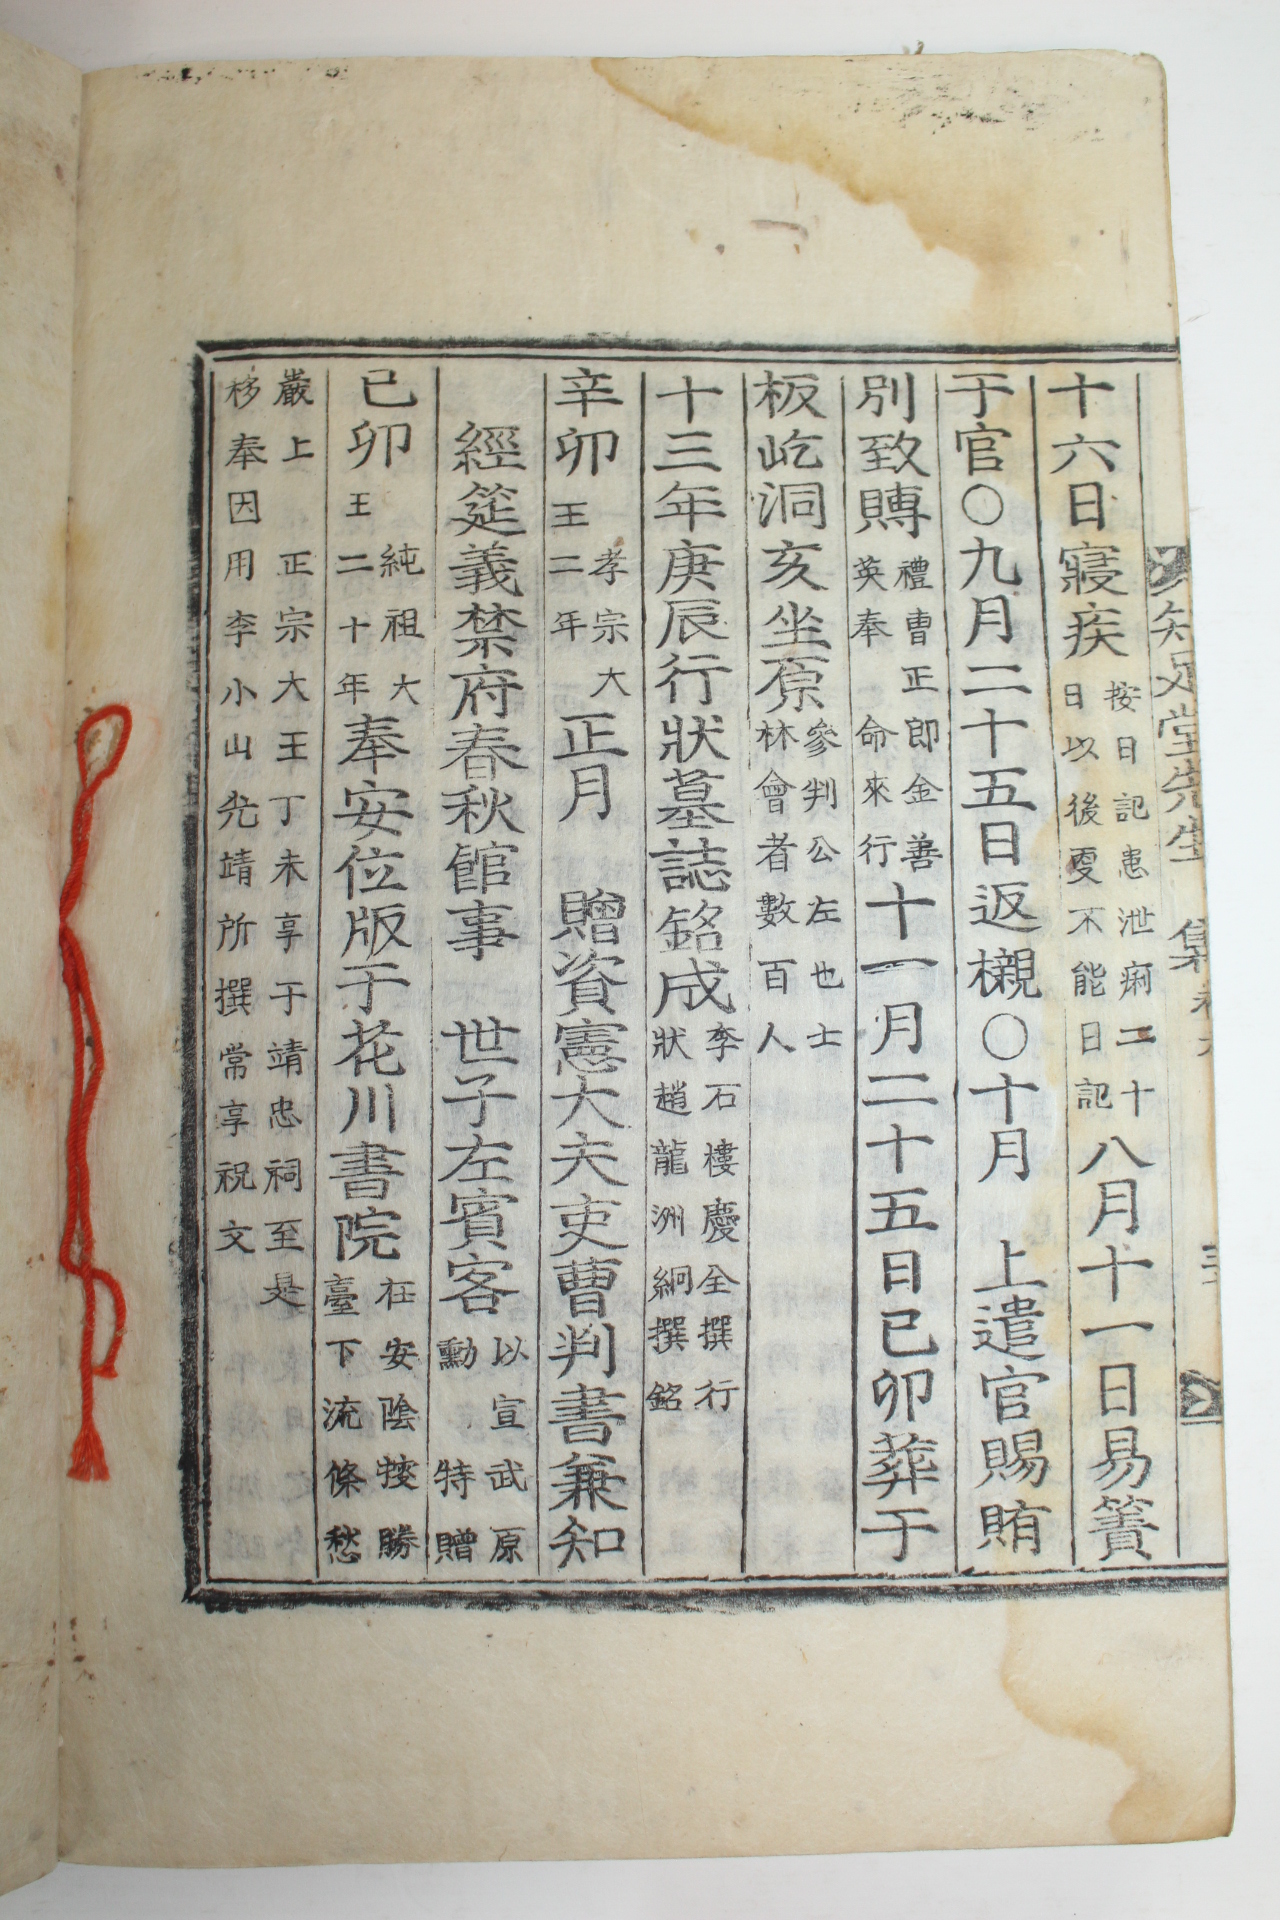 十六日寢疾按日記患泄痢二十日以後更不能日記八月十一日易簀
于官○九月二十五日返櫬○十月 上遣官賜賄
別致賻禮曹正郎金善英奉 命來行十一月二十五日己卯葬于
板屹洞亥坐原參判公左也士林會者數百人
十三年庚辰行狀墓誌銘成李石樓慶全撰行狀趙龍洲絅撰銘
辛卯孝宗大王二年正月 贈資憲大夫吏曹判書兼知
經筵義禁府春秋館事 世子左賓客以宣武原勳 特贈
己卯純祖大王二十年奉安位版于花川書院在安陰搜勝臺下流條愁
嚴上 正宗大王丁未享于靖忠祠至是
移奉因用李小山光靖所撰常享祝文
知足堂先生集卷